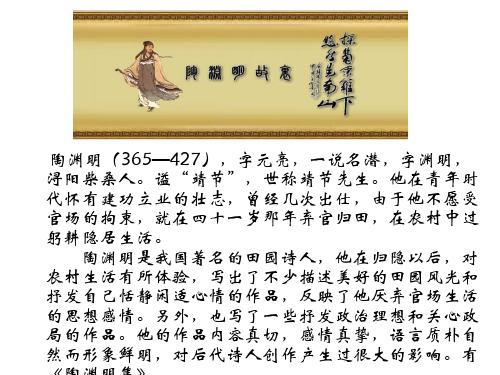 陶渊明故里
採菊东篱下
悠然见南山
陶渊明（365—427），字元亮，一说名潜，字渊明，
浔阳柴桑人。谥“靖节”，世称靖节先生。他在青年时
代怀有建功立业的壮志，曾经几次出仕，由于他不愿受
官场的拘束，就在四十一岁那年弃官归田，在农村中过
躬耕隐居生活。
陶渊明是我国著名的田园诗人，他在归隐以后，对
农村生活有所体验，写出了不少描述美好的田园风光和
抒发自己恬静闲适心情的作品，反映了他厌弃官场生活
的思想感情。另外，也写了一些抒发政治理想和关心政
局的作品。他的作品内容真切，感情真挚，语言质朴自
然而形象鲜明，对后代诗人创作产生过很大的影响。有
《陶渊明集》